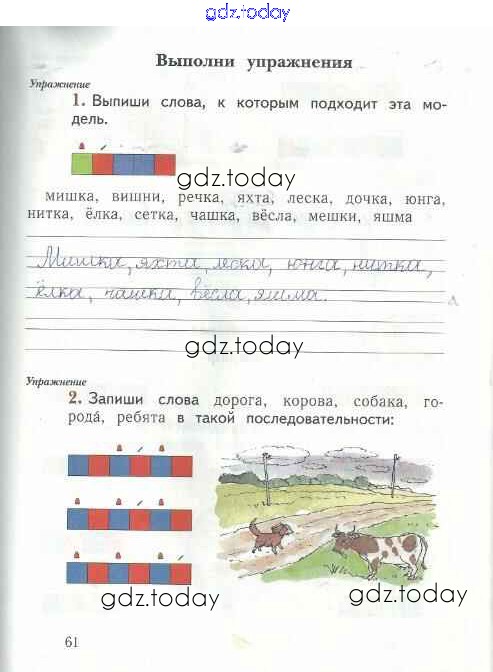 gdz.today
Выполни упражнения
Упражнение
1. Выпиши слова, к которым подходит эта мо-
дель.
gdz.today
мишка, вишни, речка, яхта, леска, дочка, юнга,
нитка, ёлка, сетка, чашка, вёсла, мешки, яшма
Мишка, яхта, леска, юнга, нитка,
ёлка, чашка, вёсла, яшма.
gdz.today
Упражнение
2. Запиши слова дорога, корова, собака, го-
рода́, ребята в такой последовательности:
gdz.today
gdz.today
61